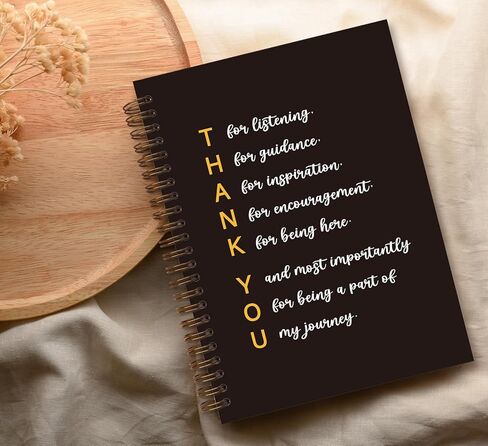 T for listening.
H for guidance.
A for inspiration.
N for encouragement.
K for being here.
Y and most importantly
O for being a part of
U my journey.